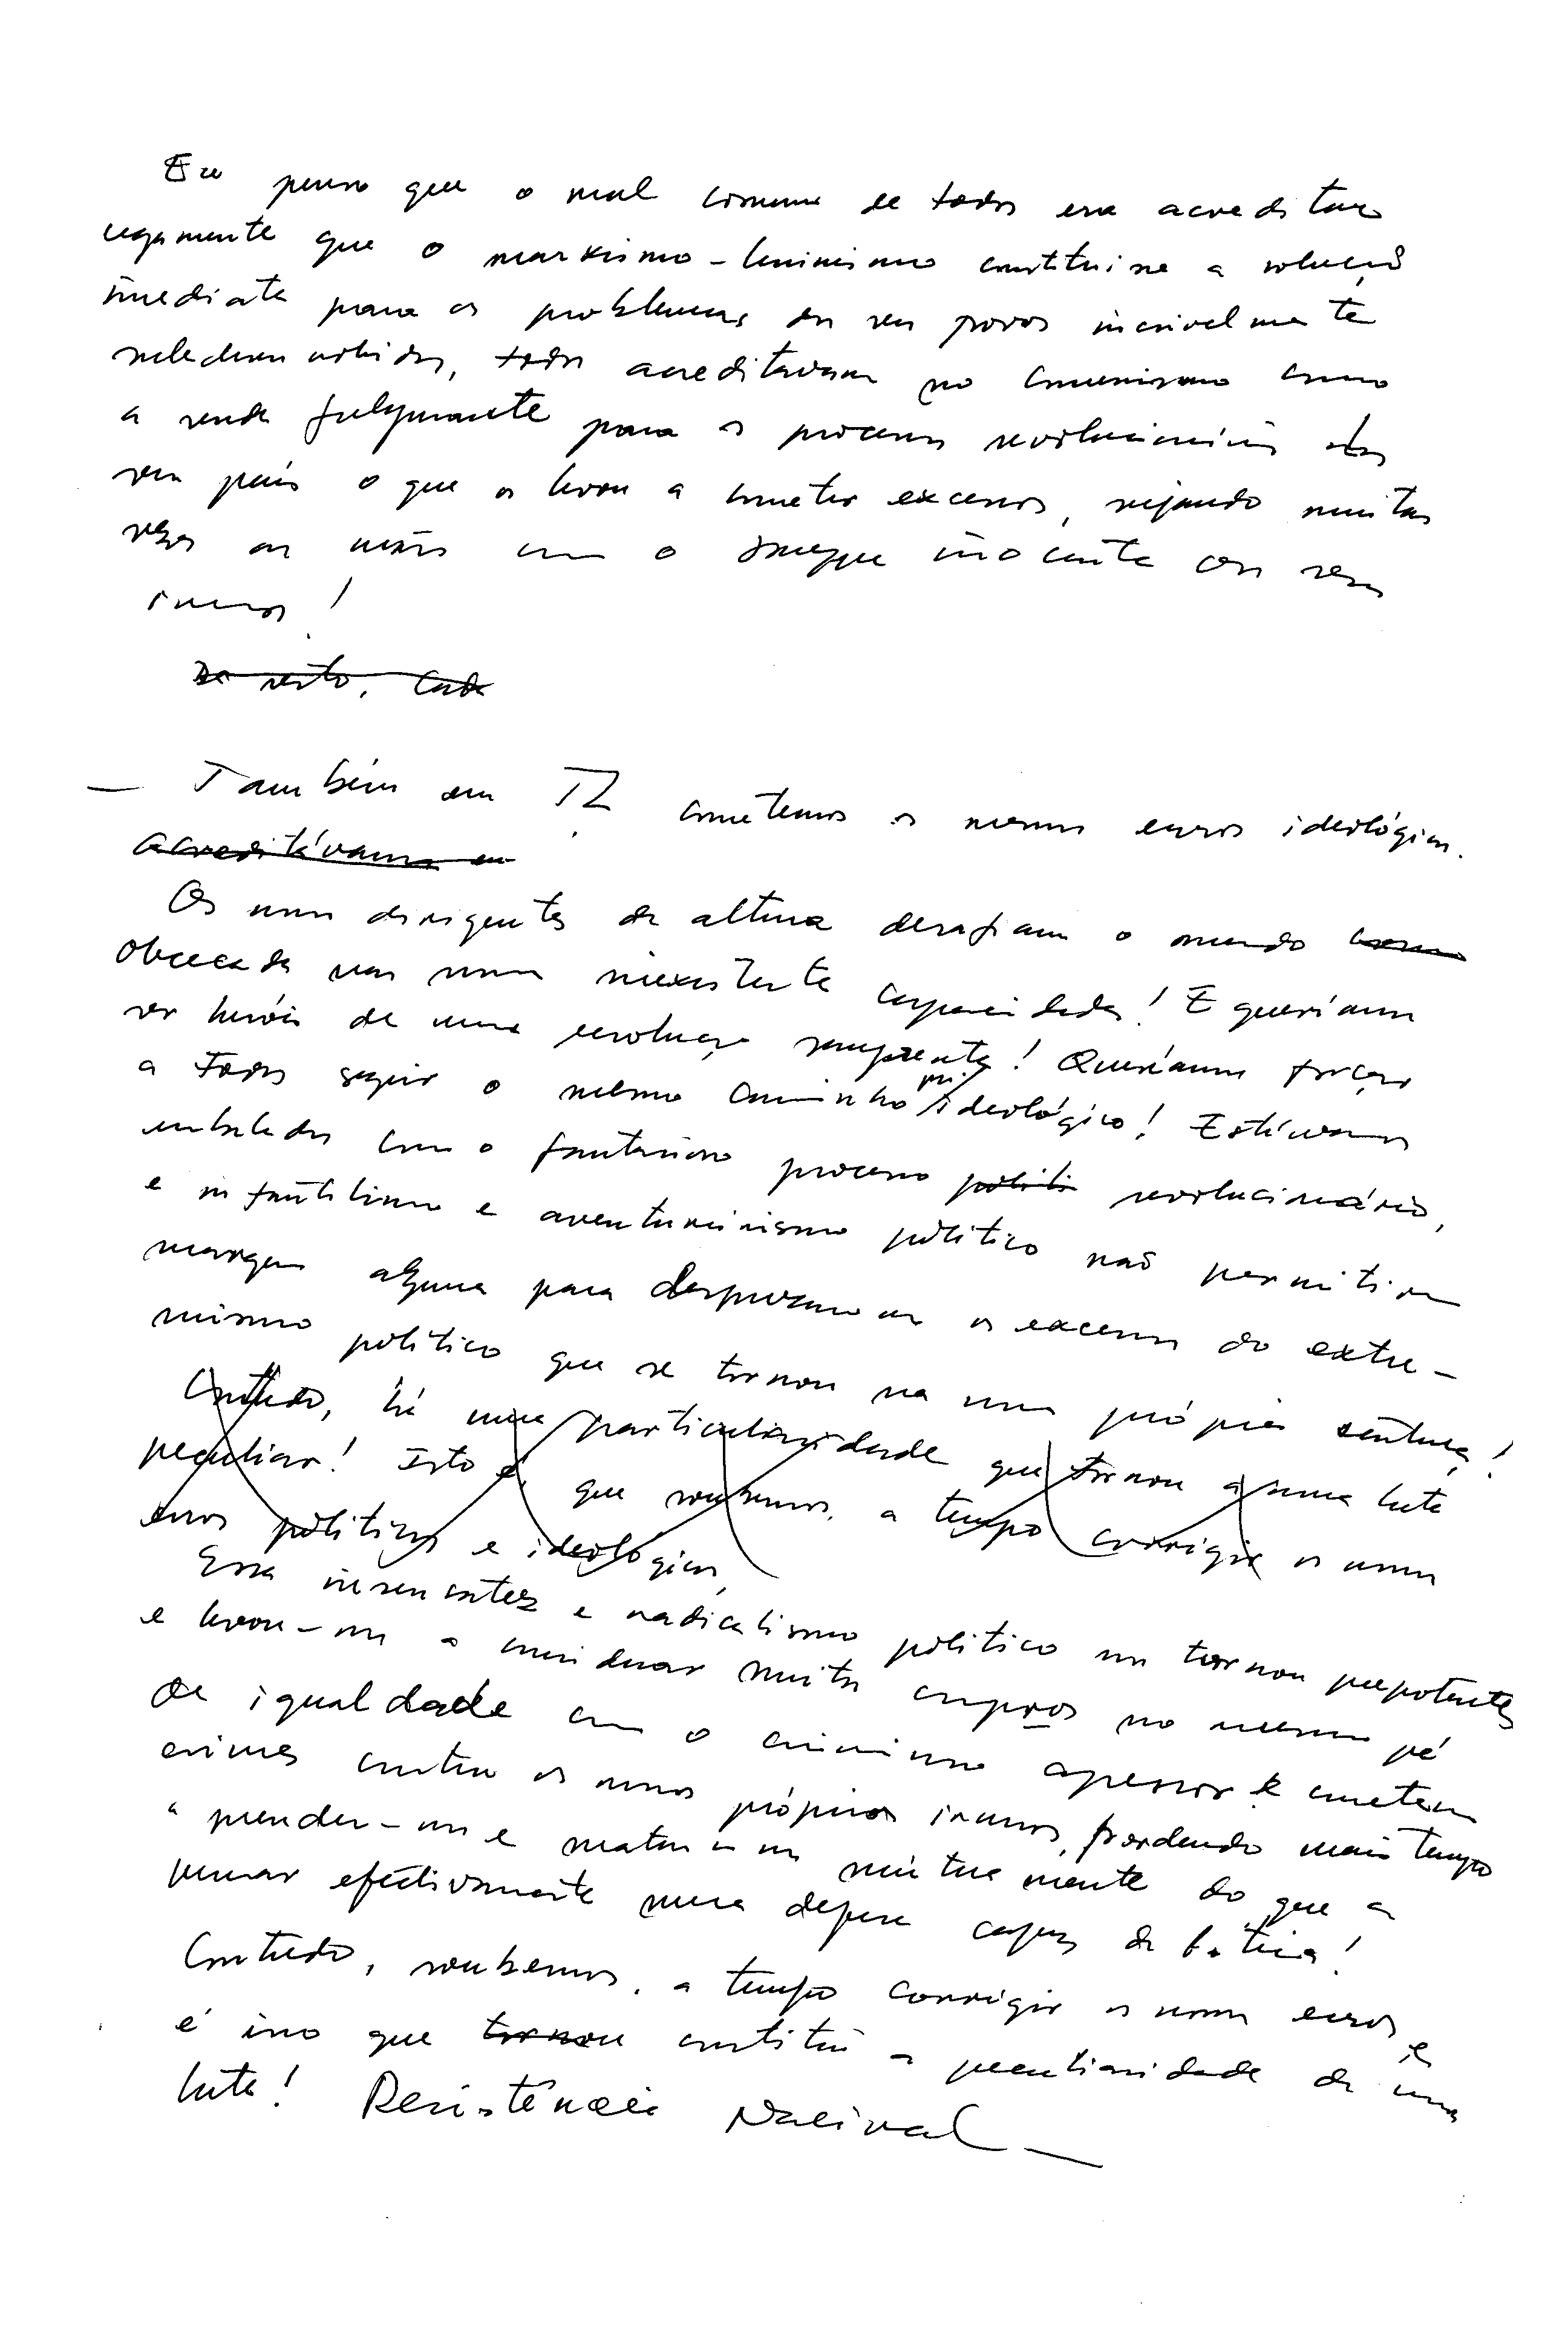 Eu penso que o mal comum de todos era acreditar
cegamente que o marxismo-leninismo constituisse a solução
imediata para os problemas dos seus povos incrivelmente
subdesenvolvidos, todos acreditavam no comunismo como
a senda fulgurante para os processos revolucionários dos
seus país o que os levou a cometer excessos, sujando muitas
vezes as mãos com o sangue inocente dos seus
irmãos!
De resto, cada
— Também em TL cometemos os mesmos erros ideológicos.
acreditávamos em
Os nossos dirigentes da altura desafiam o mundo como
obcecados nas suas inexistente capacidades! E queríamos
ser heróis de uma revolução sangrenta! Queríamos forçar
a todos seguir o mesmo caminho político ideológico! Estávamos
embalados com o fantasioso processo politi revolucionário,
e infantilismo e aventureirismo político não permitiu
margem alguma para desprezarmos os excessos do extre-
mismo político que se tornou na nossa própria sentença!
Contudo, há uma particularidade que tornou a nossa luta
peculiar! Isto é, que soubemos, a tempo corrigir os nossos
erros políticos e ideológicos,
Essa insensatez e radicalismo político nos tornou prepotentes
e levou-nos a considerar muitos corpos no mesmo pé
de igualdade com o criminoso agressor e cometer
crimes contra os nossos próprios irmãos, perdendo mais tempo
a prender-nos e matar-nos mútuamente do que a
pensar efectivamente numa defesa capaz da Pátria!
Contudo, soubemos, a tempo corrigir os nossos erros, e
é isso que tornou constitui a peculiaridade da nossa
luta! Resistência Nacional —